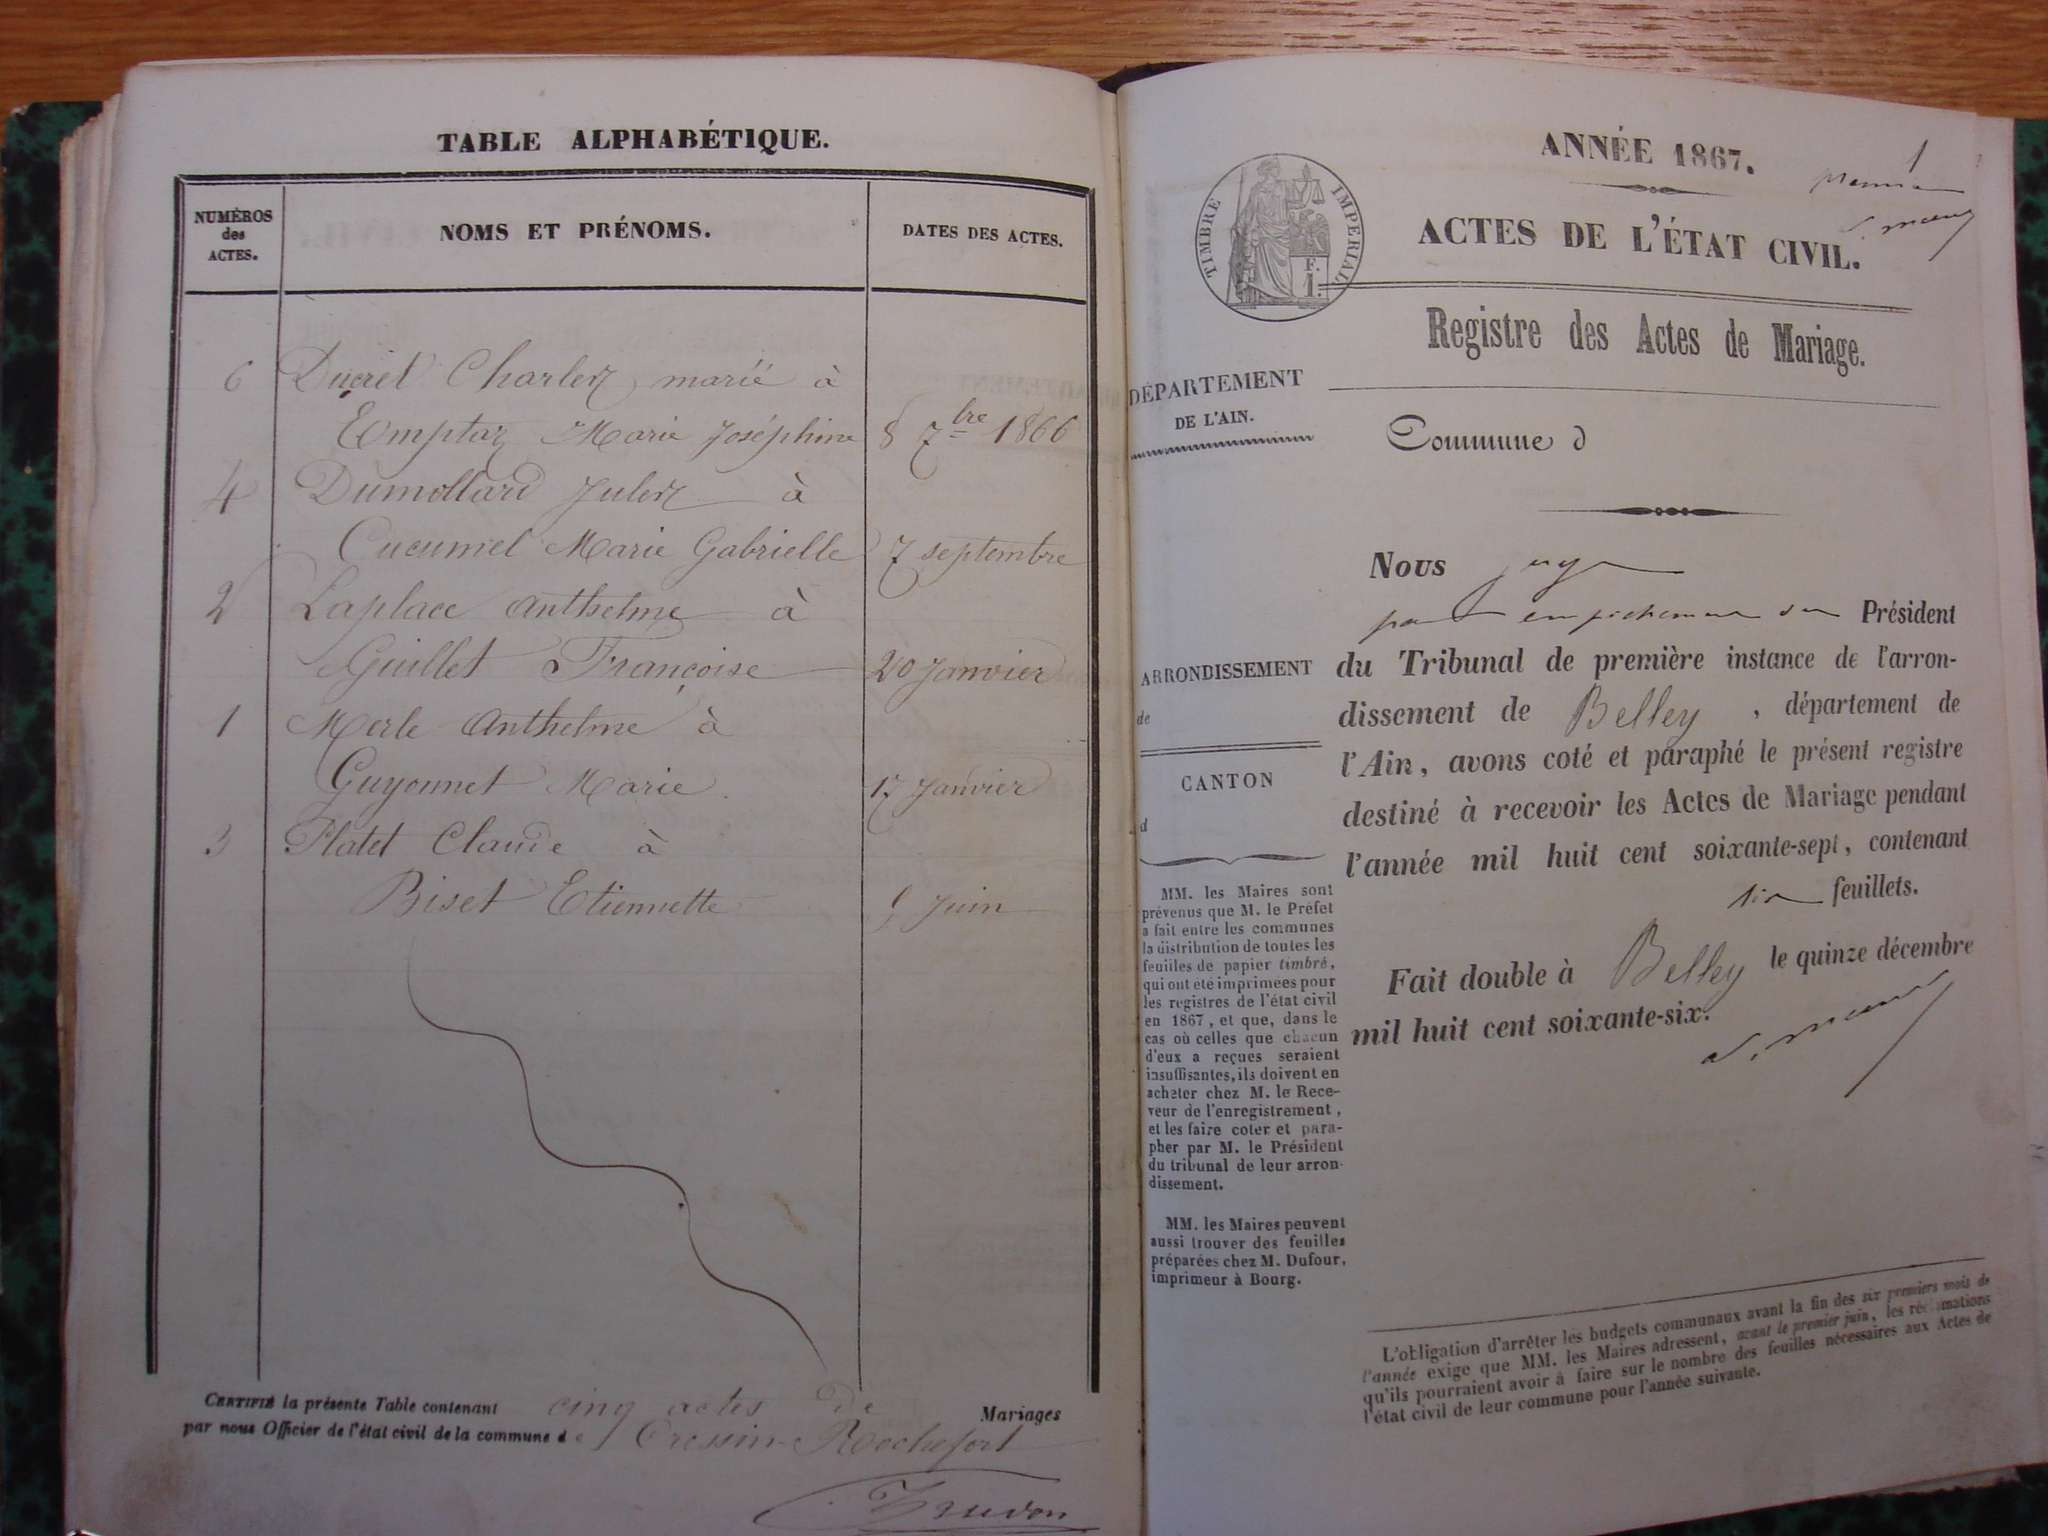 TABLE ALPHABÉTIQUE.
NUMÉROS des ACTES.
NOMS ET PRÉNOMS.
DATES DES ACTES.
6 Ducret Charles marié à
Emptaz Marie Joséphine 8 7bre 1866
4 Dumollard Jules à
Cucumel Marie Gabrielle 7 septembre
2 Laplace Anthelme à
Guillet Françoise 20 Janvier
1 Merle Anthelme à
Guyonnet Marie 17 Janvier
3 Platet Claude à
Biset Etiennette 9 Juin
CERTIFIÉ la présente Table contenant cinq actes de Mariages
par nous Officier de l'état civil de la commune de Cressin-Rochefort
Trudon
ANNÉE 1867.
1
premier
ACTES DE L'ÉTAT CIVIL.
TIMBRE IMPÉRIAL
F.
1.
Registre des Actes de Mariage.
DÉPARTEMENT
DE L'AIN.
Commune d
Nous juge
pour empêchement du Président
du Tribunal de première instance de l'arron-
dissement de Belley, département de
l'Ain, avons coté et paraphé le présent registre
destiné à recevoir les Actes de Mariage pendant
l'année mil huit cent soixante-sept, contenant
six feuillets.
Fait double à Belley le quinze décembre
mil huit cent soixante-six.
ARRONDISSEMENT
de
CANTON
d
MM. les Maires sont
prévenus que M. le Préfet
a fait entre les communes
la distribution de toutes les
feuilles de papier timbré,
qui ont été imprimées pour
les registres de l'état civil
en 1867, et que, dans le
cas où celles que chacun
d'eux a reçues seraient
insuffisantes, ils doivent en
acheter chez M. le Rece-
veur de l'enregistrement,
et les faire coter et para-
pher par M. le Président
du tribunal de leur arron-
dissement.
MM. les Maires peuvent
aussi trouver des feuilles
préparées chez M. Dufour,
imprimeur à Bourg.
L'obligation d'arrêter les budgets communaux avant la fin des six premiers mois de
l'année exige que MM. les Maires adressent, avant le premier juin, les réclamations
qu'ils pourraient avoir à faire sur le nombre des feuilles nécessaires aux Actes de
l'état civil de leur commune pour l'année suivante.